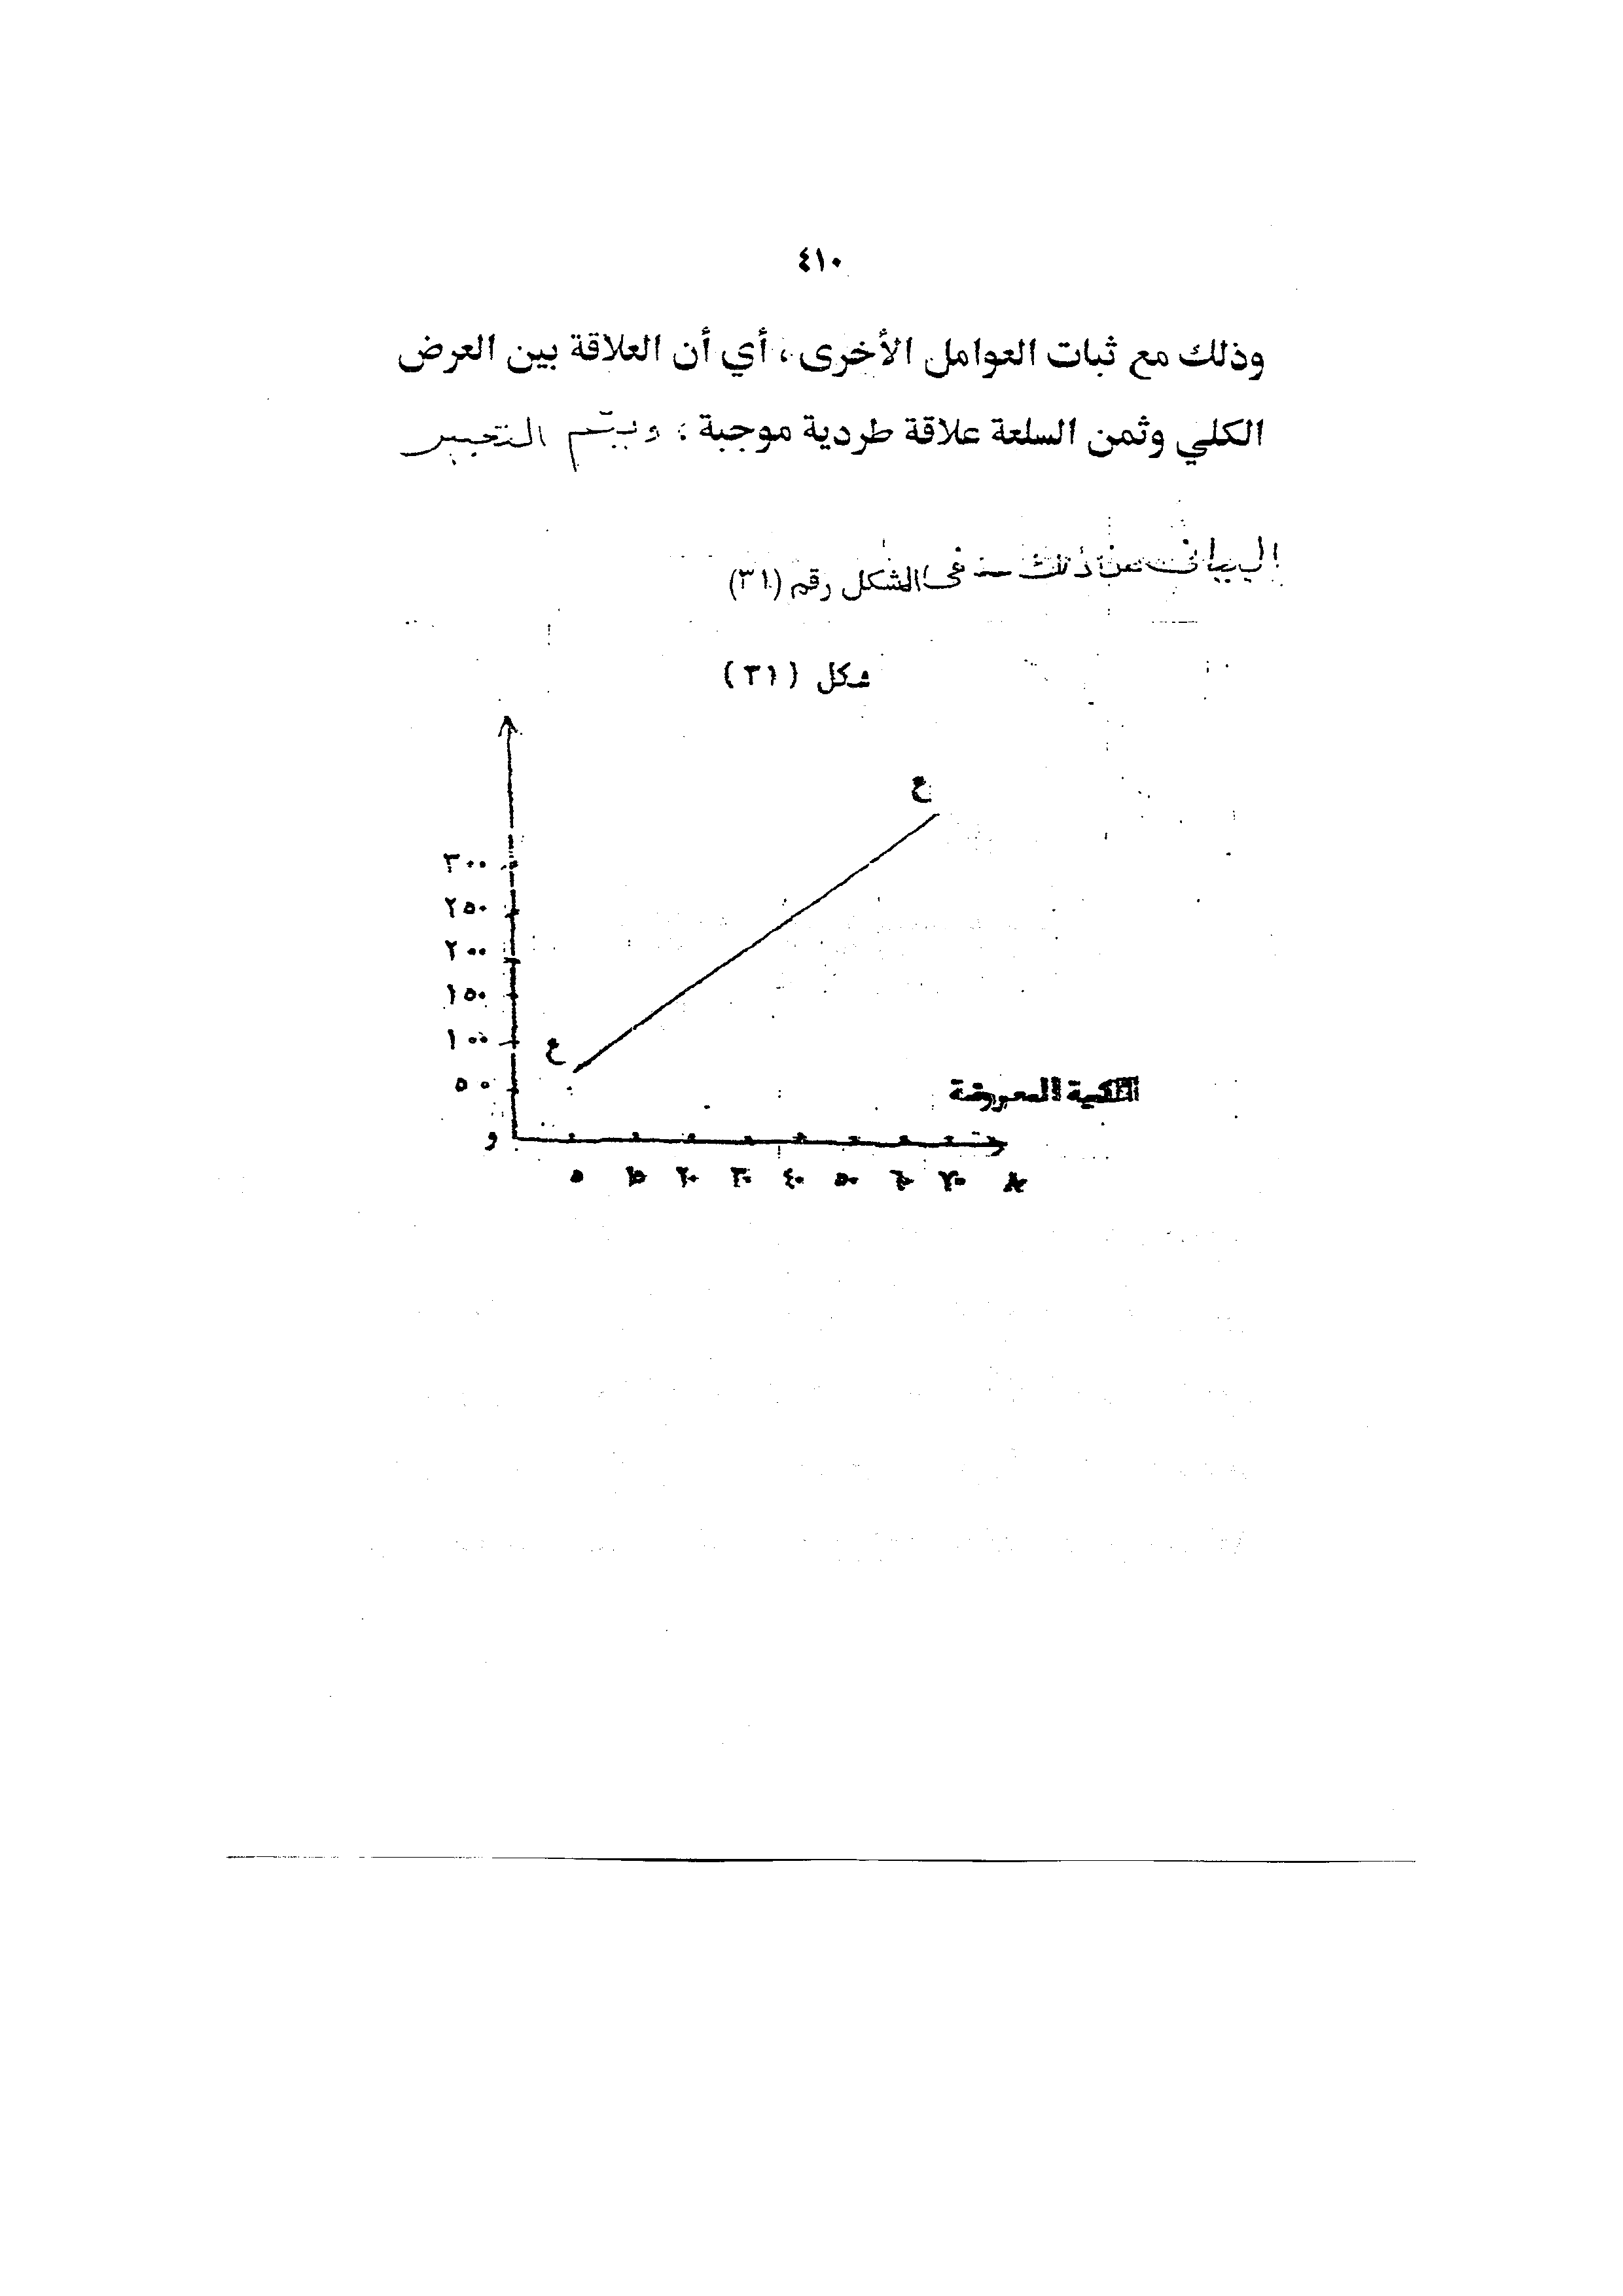 ٤١٠
وذلك مع ثبات العوامل الأخرى ، أي أن العلاقة بين العرض
الكلي وثمن السلعة علاقة طردية موجبة ؛ ويتم التعبير
البيانى عن ذلك — فى الشكل رقم (٣١)
شكل (٣١)
ع
٣٠٠
٢٥٠
٢٠٠
١٥٠
١٠٠
ع
٥٠
الكمية المعروضة
و
٥ ١٥ ٢٠ ٣٠ ٤٠ ٥٠ ٦٠ ٧٠ ٨٠